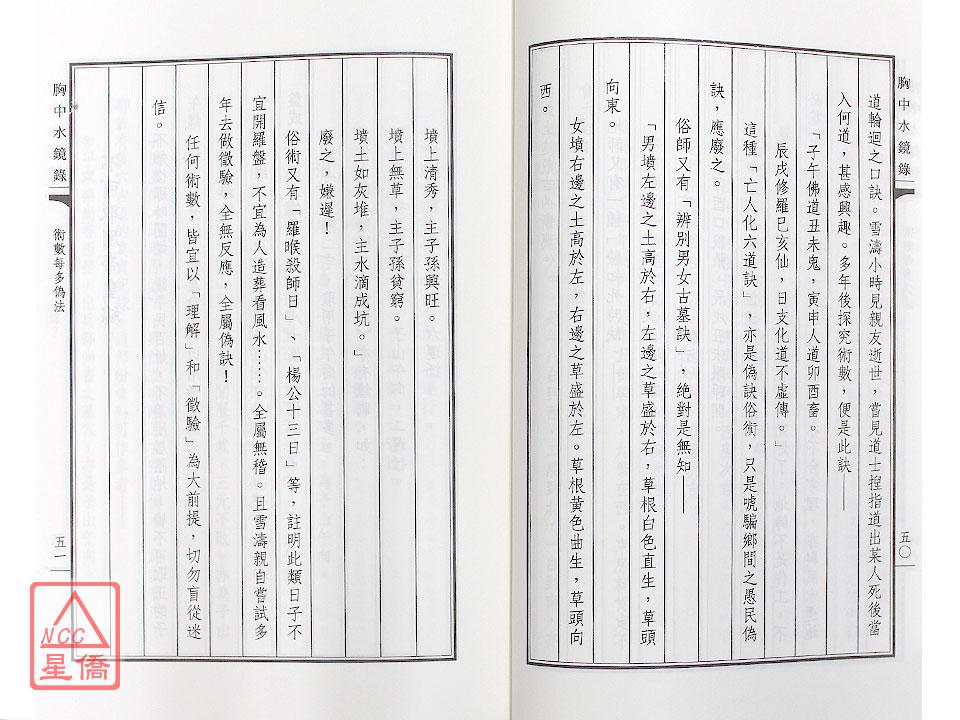 胸中水鏡錄
五〇
道輪迴之口訣。雪濤小時見親友逝世，嘗見道士揑指道出某人死後當
入何道，甚感興趣。多年後探究術數，便是此訣——
「子午佛道丑未鬼，寅申人道卯酉畜。
辰戌修羅巳亥仙，日支化道不虛傳。」
這種「亡人化六道訣」，亦是偽訣俗術，只是唬騙鄉間之愚民偽
訣，應廢之。
俗師又有「辨別男女古墓訣」，絕對是無知——
「男墳左邊之土高於右，左邊之草盛於右，草根白色直生，草頭
向東。
女墳右邊之土高於左，右邊之草盛於左。草根黃色曲生，草頭向
西。
墳上清秀，主子孫興旺。
墳上無草，主子孫貧窮。
墳土如灰堆，主水滴成坑。」
廢之，嫌遲！
俗術又有「羅睺殺師日」、「楊公十三日」等，註明此類日子不
宜開羅盤，不宜為人造葬看風水……。全屬無稽。且雪濤親自嘗試多
年去做徵驗，全無反應，全屬偽訣！
任何術數，皆宜以「理解」和「徵驗」為大前提，切勿盲從迷
信。
胸中水鏡錄
術數每多偽法
五一
NCC
星僑